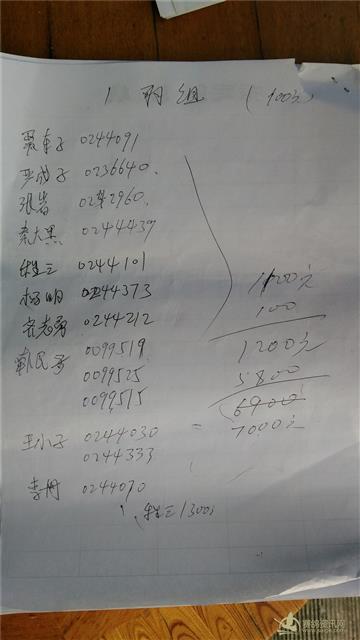 1羽组 (100元)
聂东子 0244091
0236640.
张岩 0242960.
秦大黑 0244437
牲三 0244101
杨明 0244373
0244212
0099519
0099525
0099515
王小子 0244030 =
0244333
李丹 0244070
1100元
100
1200元
5800
6900
7000元
牲三1300
赛鸽资讯网